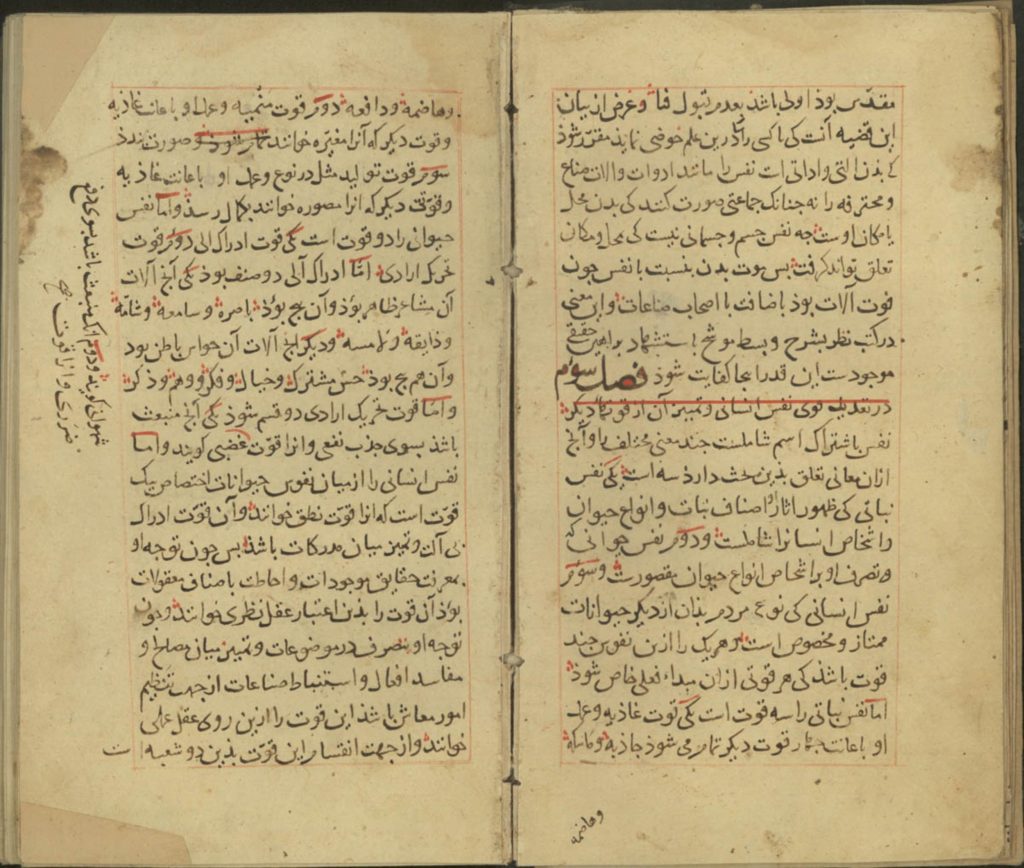 مقدّس بوذ اولی باشذ بعدم قبول فنا و غرض از بیان
این قضیه آنست کی تا کسی را کدرین علم خوضی نماید مقرّر شوذ
کی بدن التی و اداتی است نفس را مانند ادوات و الات صناع
و محترفه را نه چنانک جماعتی صورت کنند کی بدن محل
یا مکان اوست چه نفس جسم و جسمانی نیست کی بمحل و مکان
تعلق تواند گرفت بس موت بدن بنسبت با نفس چون
فوت آلات بوذ باضافت با اصحاب صناعات و این معنی
در کتب نظر بشرح و بسط موشح باستشهاد براهین حقیقی
موجودست این قدر اینجا کفایت شوذ فصل سوم
در تعدید قوی نفس انسانی و تمییز آن از قوتهاء دیگر
نفس باشتراک اسم شاملست چند معنی مختلف را و آنج
ازان معانی تعلق بذین بحث دارذ سه است یکی نفس
نباتی کی ظهور اثار او اصناف نبات و انواع حیوان
و اشخاص انسانرا شاملست و دوم نفس حیوانی که
و تصرف او بر اشخاص انواع حیوان مقصورست و سوم
نفس انسانی کی نوع مردم بذان از دیگر حیوانات
ممتاز و مخصوص است و هر یک را ازین نفوس چند
قوت باشذ کی هر قوتی ازان مبداء فعلی خاص شوذ
اما نفس نباتی را سه قوت است یکی قوت غاذیه و عمل
او باعانت چهار قوت دیگر تمام می شوذ جاذبه و ماسکه
وهاضمه
وهاضمه و دافعه دوم قوت منمیه و عمل او باعانت غاذیه
و قوت دیگر که آنرا مغیّره خوانند صورت بندذ
سوم قوت تولید مثل در نوع و عمل او باعانت غاذیه
و قوتی دیگر که انرا مصوره خوانند بکمال رسذ و اما نفس
حیوانی را دو قوت است یکی قوت ادراک الی دوم قوت
تحریک ارادی امّا ادراک آلی دو صنف بوذ یکی آنج آلات
آن مشاعر ظاهر بوذ و آن پنج بوذ باصره و سامعه و شامّه
و ذایقه و لامسه و دیگر انج آلات آن حواس باطن بود
و آن هم پنج بوذ حسّ مشترک و خیال و فکر و وهم و ذکر
و امّا قوت تحریک ارادی دو قسم شوذ یکی آنج منبعث
باشذ بسوی جذب نفعی و انرا قوّت غضبی کویند و اما
نفس انسانی را از میان نفوس حیوانات اختصاص بیک
قوّت است که انرا قوّت نطق خوانند و آن قوّت ادراک
بی آلت و تمییز میان مدرکات باشذ بس چون توجه او
بمعرفت حقایق موجودات و احاطت باصناف معقولات
بوذ آن قوت را بذین اعتبار عقل نظری خوانند و چون
توجه او بتصرف در موضوعات و تمییز میان مصالح و
مفاسد افعال و استنباط صناعات از جهت تنظیم
امور معاش باشذ این قوت را ازین روی عقل عملی
خوانند و از جهت انقسام این قوّت بذین دو شعبه
است
شهوانی کویند و دوم انک منبعث باشد بسوی دفع
ضرری و انرا قوت